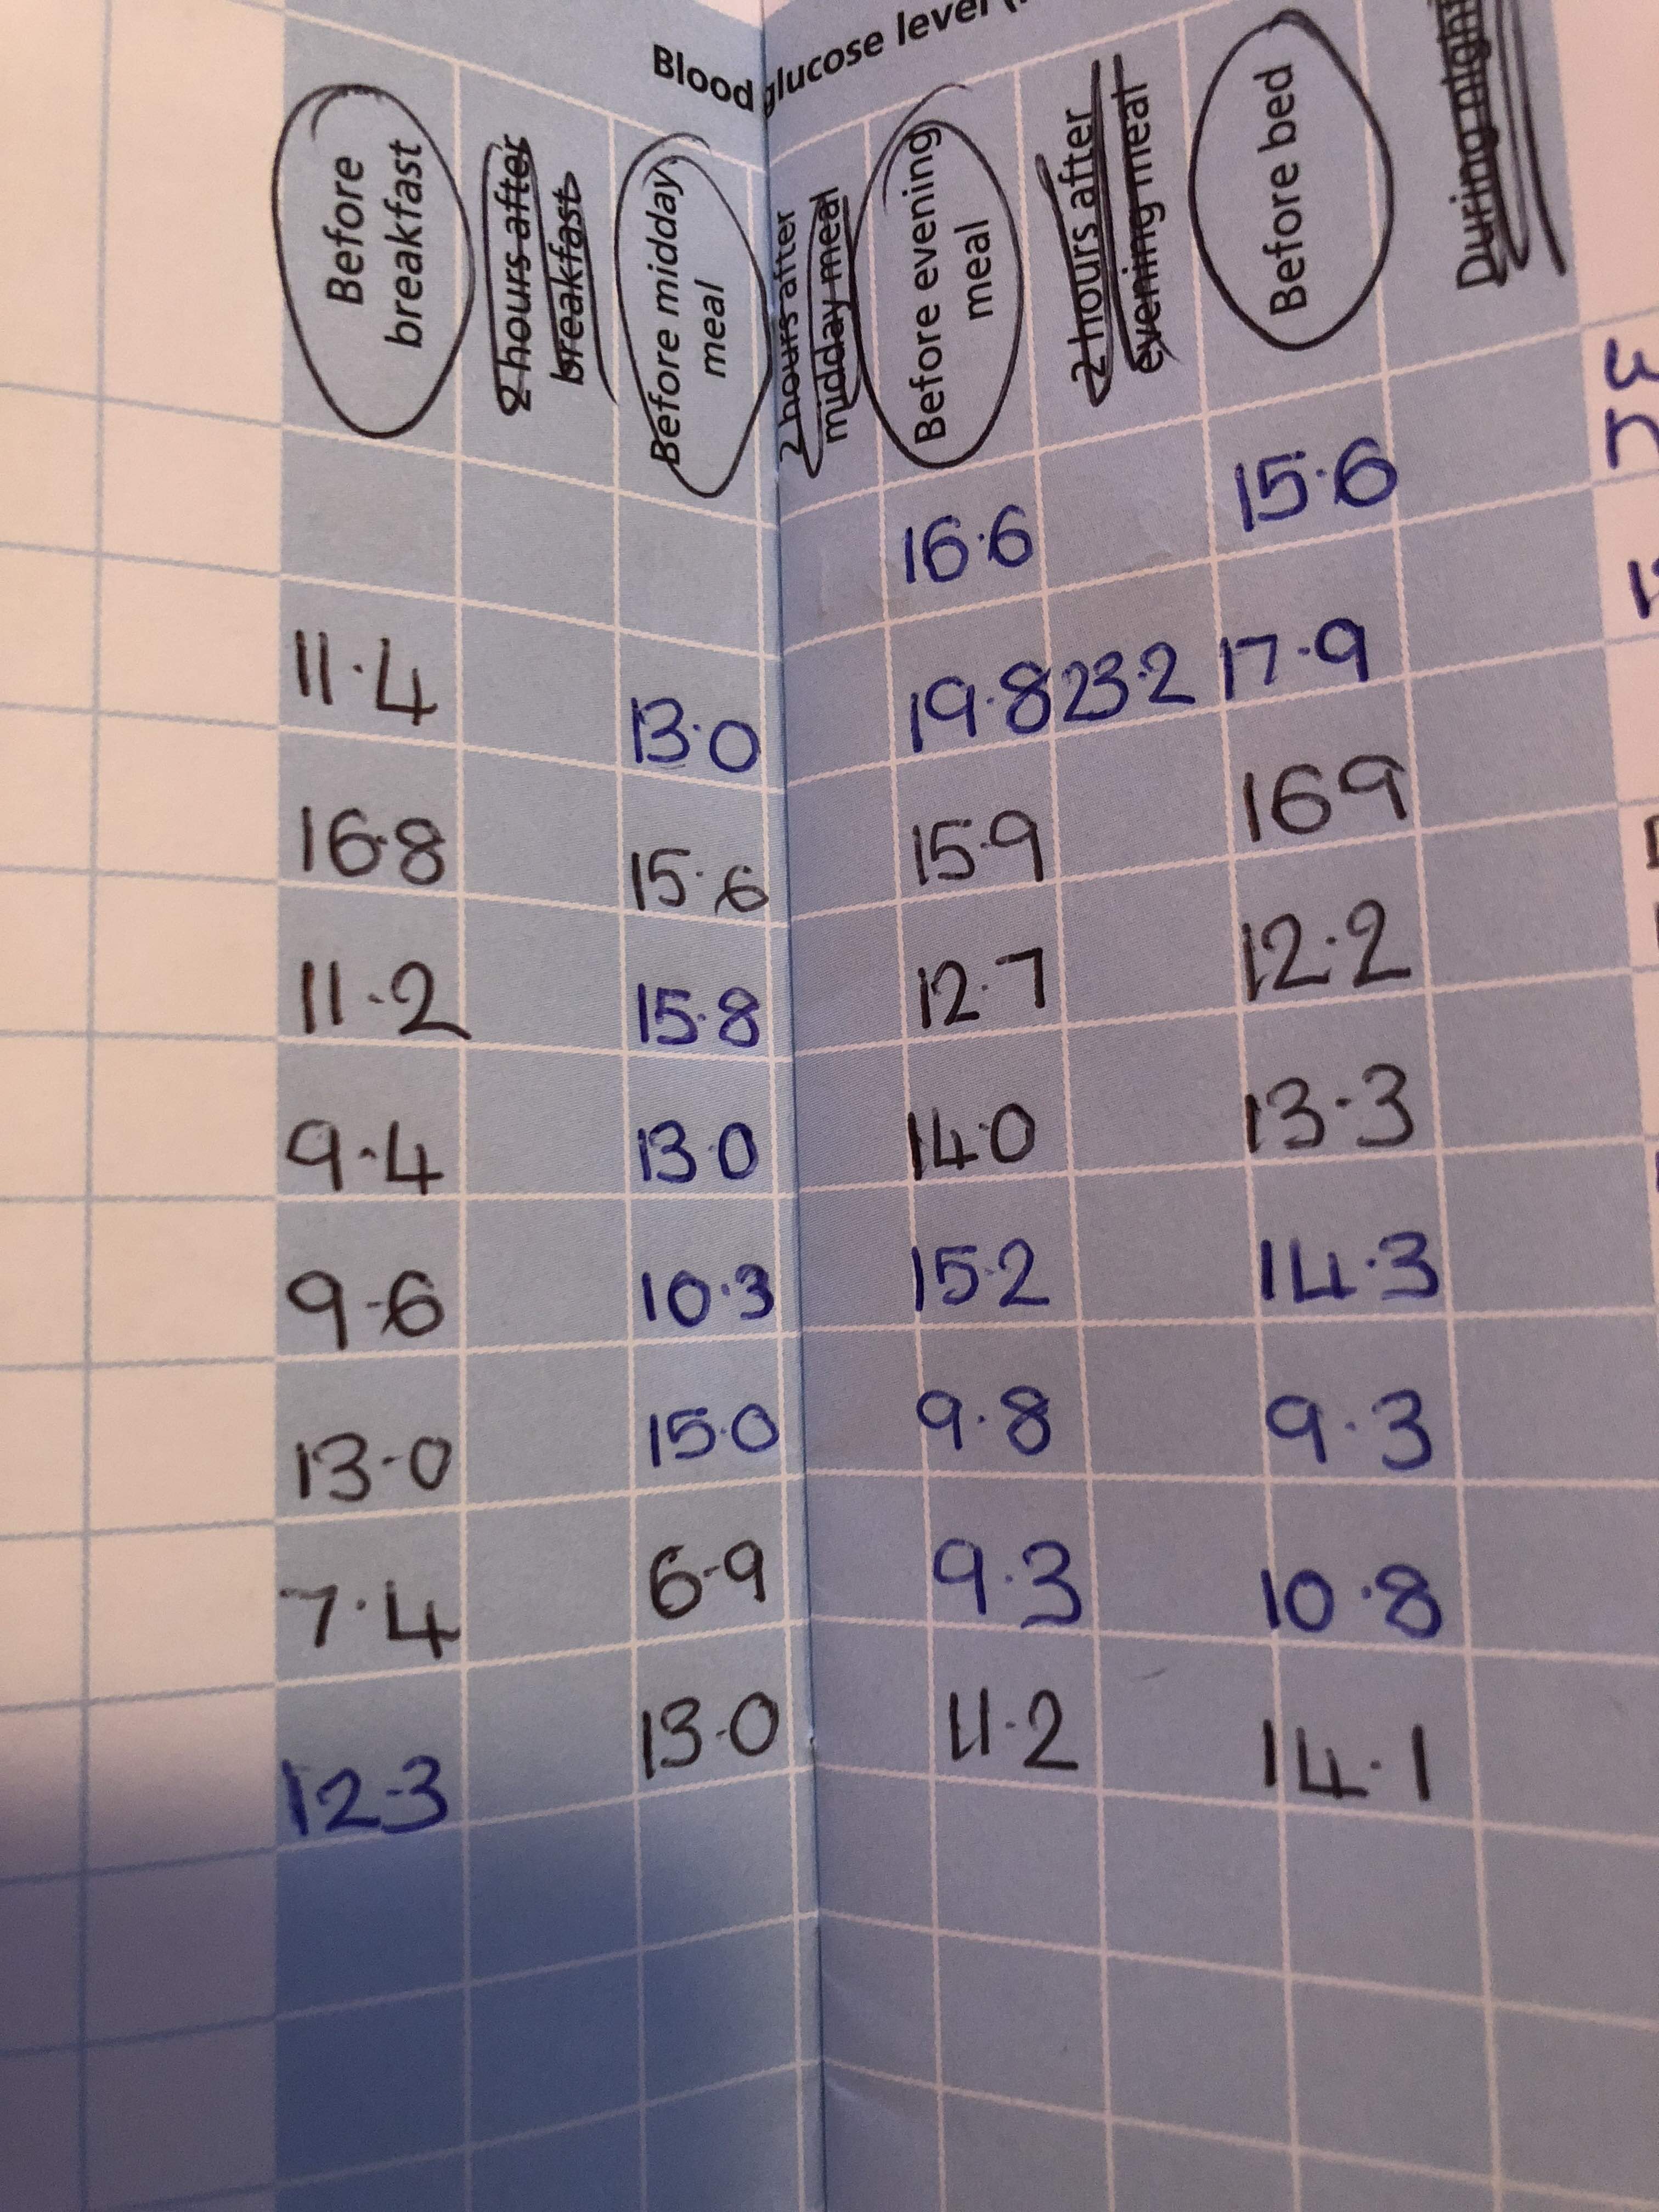 Blood glucose level
Before breakfast
2 hours after breakfast
Before midday meal
2 hours after midday meal
Before evening meal
2 hours after evening meal
Before bed
During night
16.6 15.6
11.4 13.0 19.8 23.2 17.9
16.8 15.6 15.9 169
11.2 15.8 12.7 12.2
9.4 130 14.0 13.3
9.6 10.3 15.2 14.3
13.0 15.0 9.8 9.3
7.4 6.9 9.3 10.8
12.3 13.0 11.2 14.1